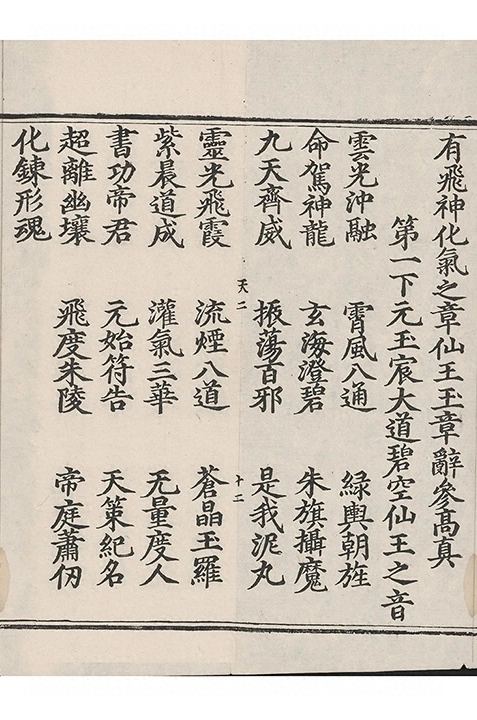 有飛神化氣之章仙王玉章辭參髙真
第一下元玉宸大道碧空仙王之音
雲光沖融　霄風八通　緑輿朝旌
命駕神龍　玄海澄碧　朱旗攝魔
九天齊威　振蕩百邪　是我泥丸
天二　十二
靈光飛霞　流煙八道　蒼晶玉羅
紫晨道成　灌氣三華　无量度人
書功帝君　元始符告　天策紀名
超離幽壤　飛度朱陵　帝庭蕭仞
化鍊形魂